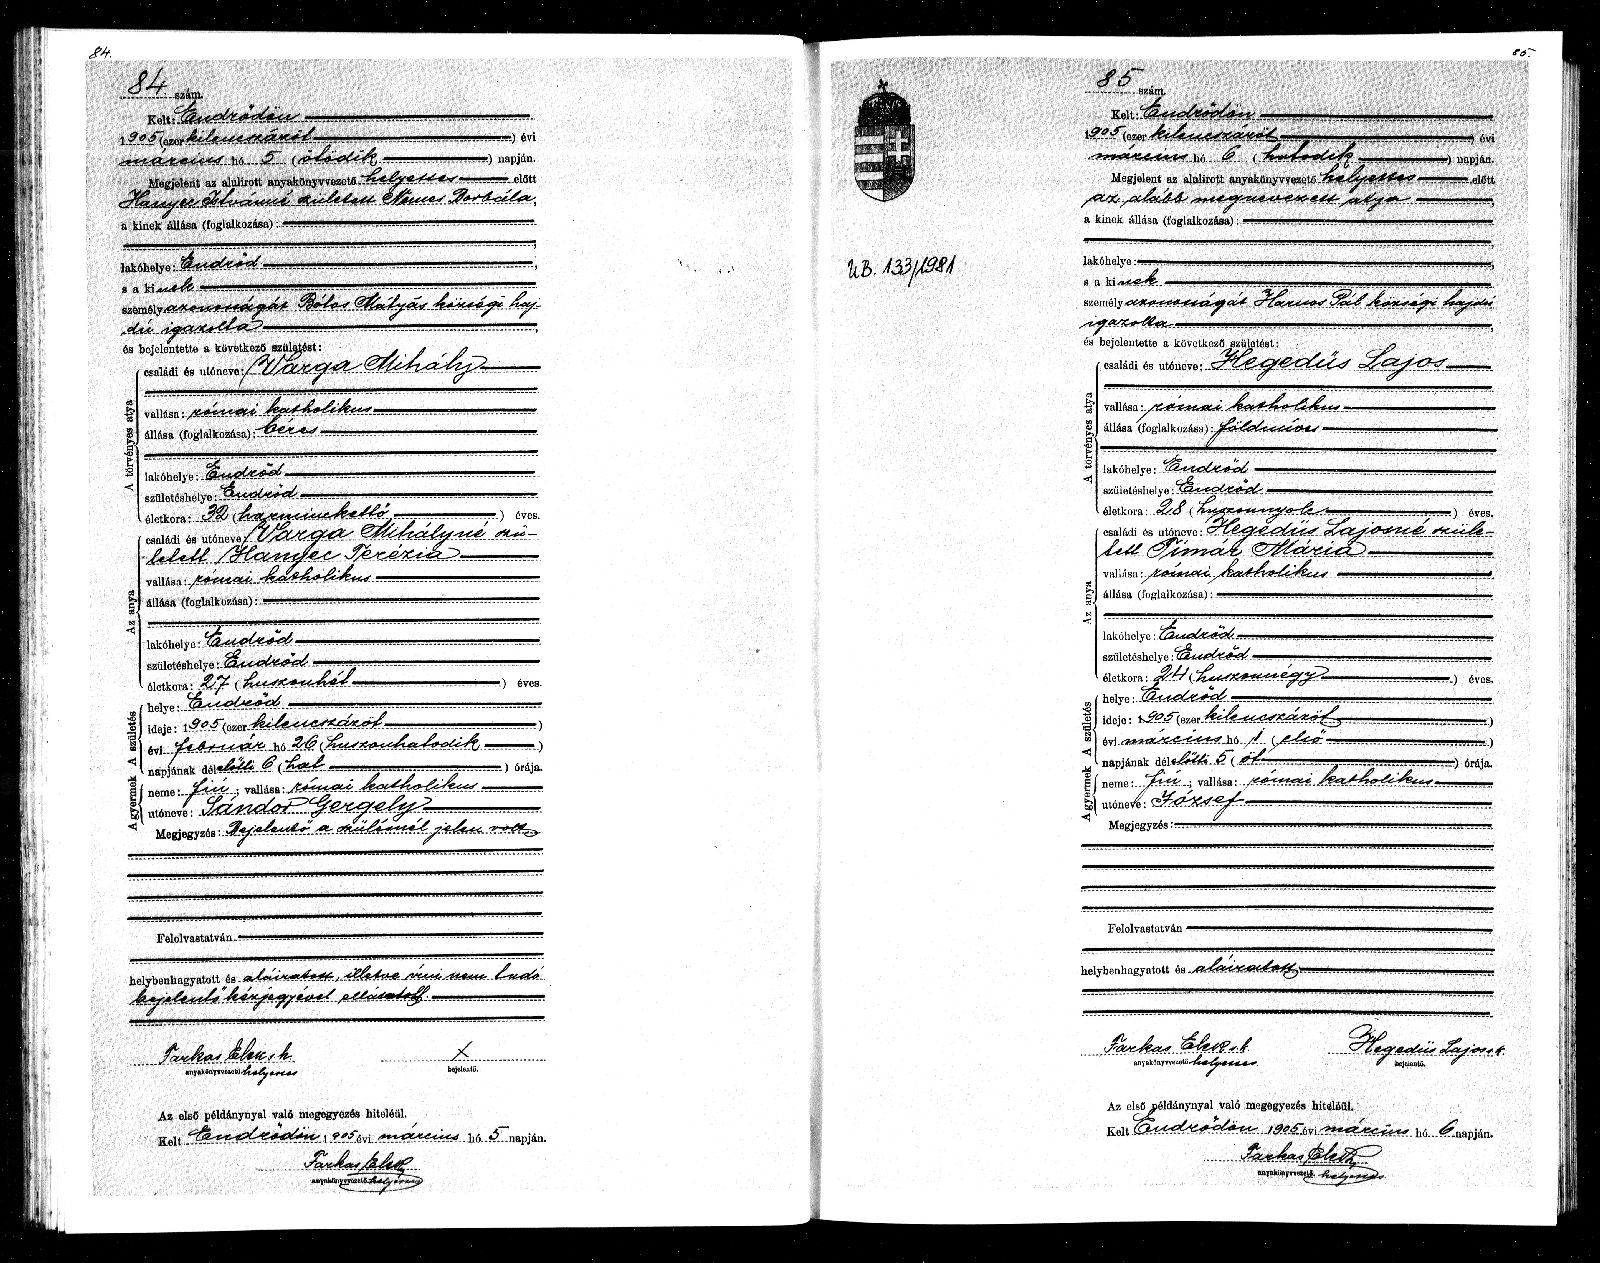 84.
84 szám.
Kelt: Endrődön
1905 (ezer kilencszázöt) évi
március hó 5 (ötödik) napján.
Megjelent az alulirott anyakönyvvezető helyettes előtt
Hanyec Istvánné született Nemes Borbála,
a kinek állása (foglalkozása):
lakóhelye: Endrőd,
s a kinek
személyazonosságát Bótos Mátyás községi haj-
dú igazolta,
és bejelentette a következő születést:
A törvényes atya
családi és utóneve: Varga Mihály
vallása: római katholikus
állása (foglalkozása): béres
lakóhelye: Endrőd
születéshelye: Endrőd
életkora: 32 (harminckettő) éves.
Az anya
családi és utóneve: Varga Mihályné szü-
letett Hanyec Terézia
vallása: római katholikus
állása (foglalkozása):
lakóhelye: Endrőd
születéshelye: Endrőd
életkora: 27 (huszonhét) éves.
A születés
helye: Endrőd
ideje: 1905 (ezer kilencszázöt)
évi február hó 26 (huszonhatodik)
napjának délelőtti 6 (hat) órája.
A gyermek
neme: fiú; vallása: római katholikus
utóneve: Sándor Gergely
Megjegyzés: Bejelentő a szülésnél jelen volt
Felolvastatván
helybenhagyatott és aláiratott, illetve írni nem tudó
bejelentő kézjegyével ellátatott
Farkas Elek s. k.
anyakönyvvezető helyettes
X
bejelentő.
Az első példánynyal való megegyezés hiteléül.
Kelt Endrődön 1905 évi március hó 5 napján.
Farkas Elek
anyakönyvvezető helyettes
85.
85 szám.
Kelt: Endrődön
1905 (ezer kilencszázöt) évi
március hó 6 (hatodik) napján.
Megjelent az alulirott anyakönyvvezető helyettes előtt
az alább megnevezett atya,
a kinek állása (foglalkozása):
lakóhelye:
s a kinek
személyazonosságát Harnos Pál községi hajdú
igazolta,
és bejelentette a következő születést:
UB. 133/1981
A törvényes atya
családi és utóneve: Hegedüs Lajos
vallása: római katholikus
állása (foglalkozása): földmíves
lakóhelye: Endrőd
születéshelye: Endrőd
életkora: 28 (huszonnyolc) éves.
Az anya
családi és utóneve: Hegedüs Lajosné szüle-
tett Tímár Mária
vallása: római katholikus
állása (foglalkozása):
lakóhelye: Endrőd
születéshelye: Endrőd
életkora: 24 (huszonnégy) éves.
A születés
helye: Endrőd
ideje: 1905 (ezer kilencszázöt)
évi március hó 1 (első)
napjának délelőtti 5 (öt) órája.
A gyermek
neme: fiú; vallása: római katholikus
utóneve: József
Megjegyzés:
Felolvastatván
helybenhagyatott és aláiratott
Farkas Elek s. k.
anyakönyvvezető helyettes
Hegedüs Lajos s. k.
bejelentő.
Az első példánynyal való megegyezés hiteléül.
Kelt Endrődön 1905 évi március hó 6 napján.
Farkas Elek
anyakönyvvezető helyettes